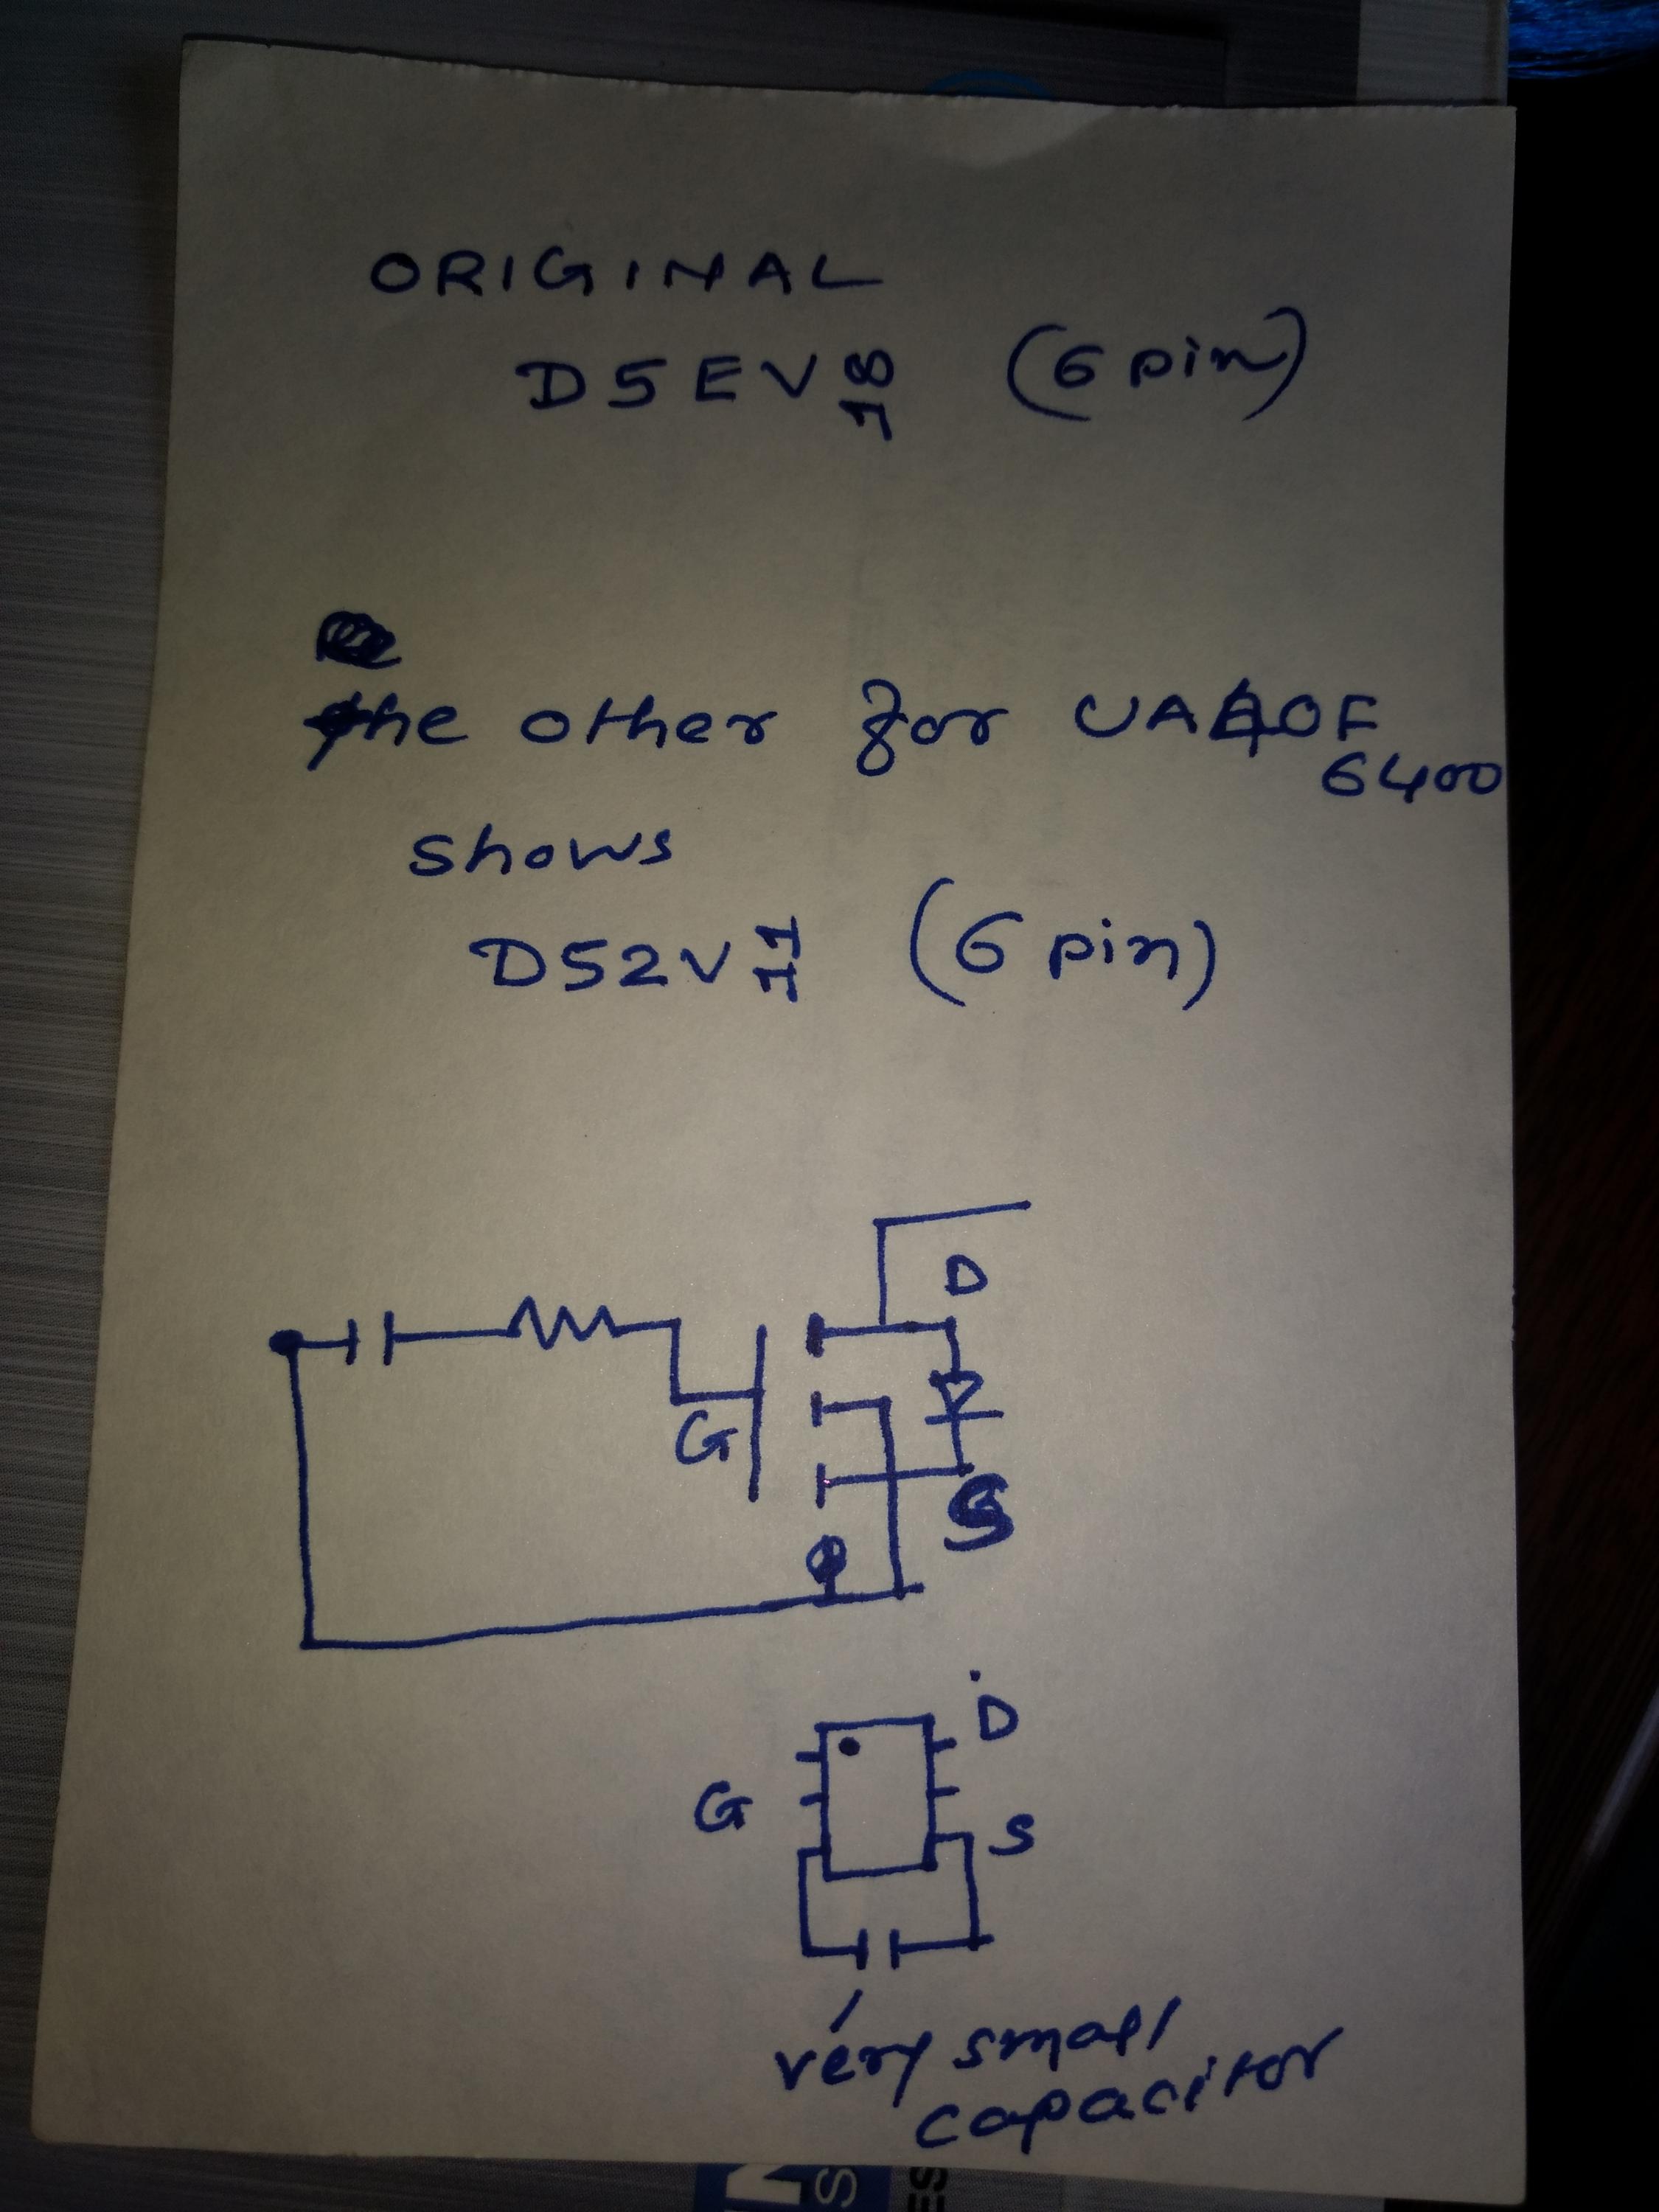 ORIGINAL
D5EV 18 (6 pin)
the other for UA40F
6400
shows
D52V 11 (6 pin)
D
G
S
D
G
S
very small
capacitor
S
ES